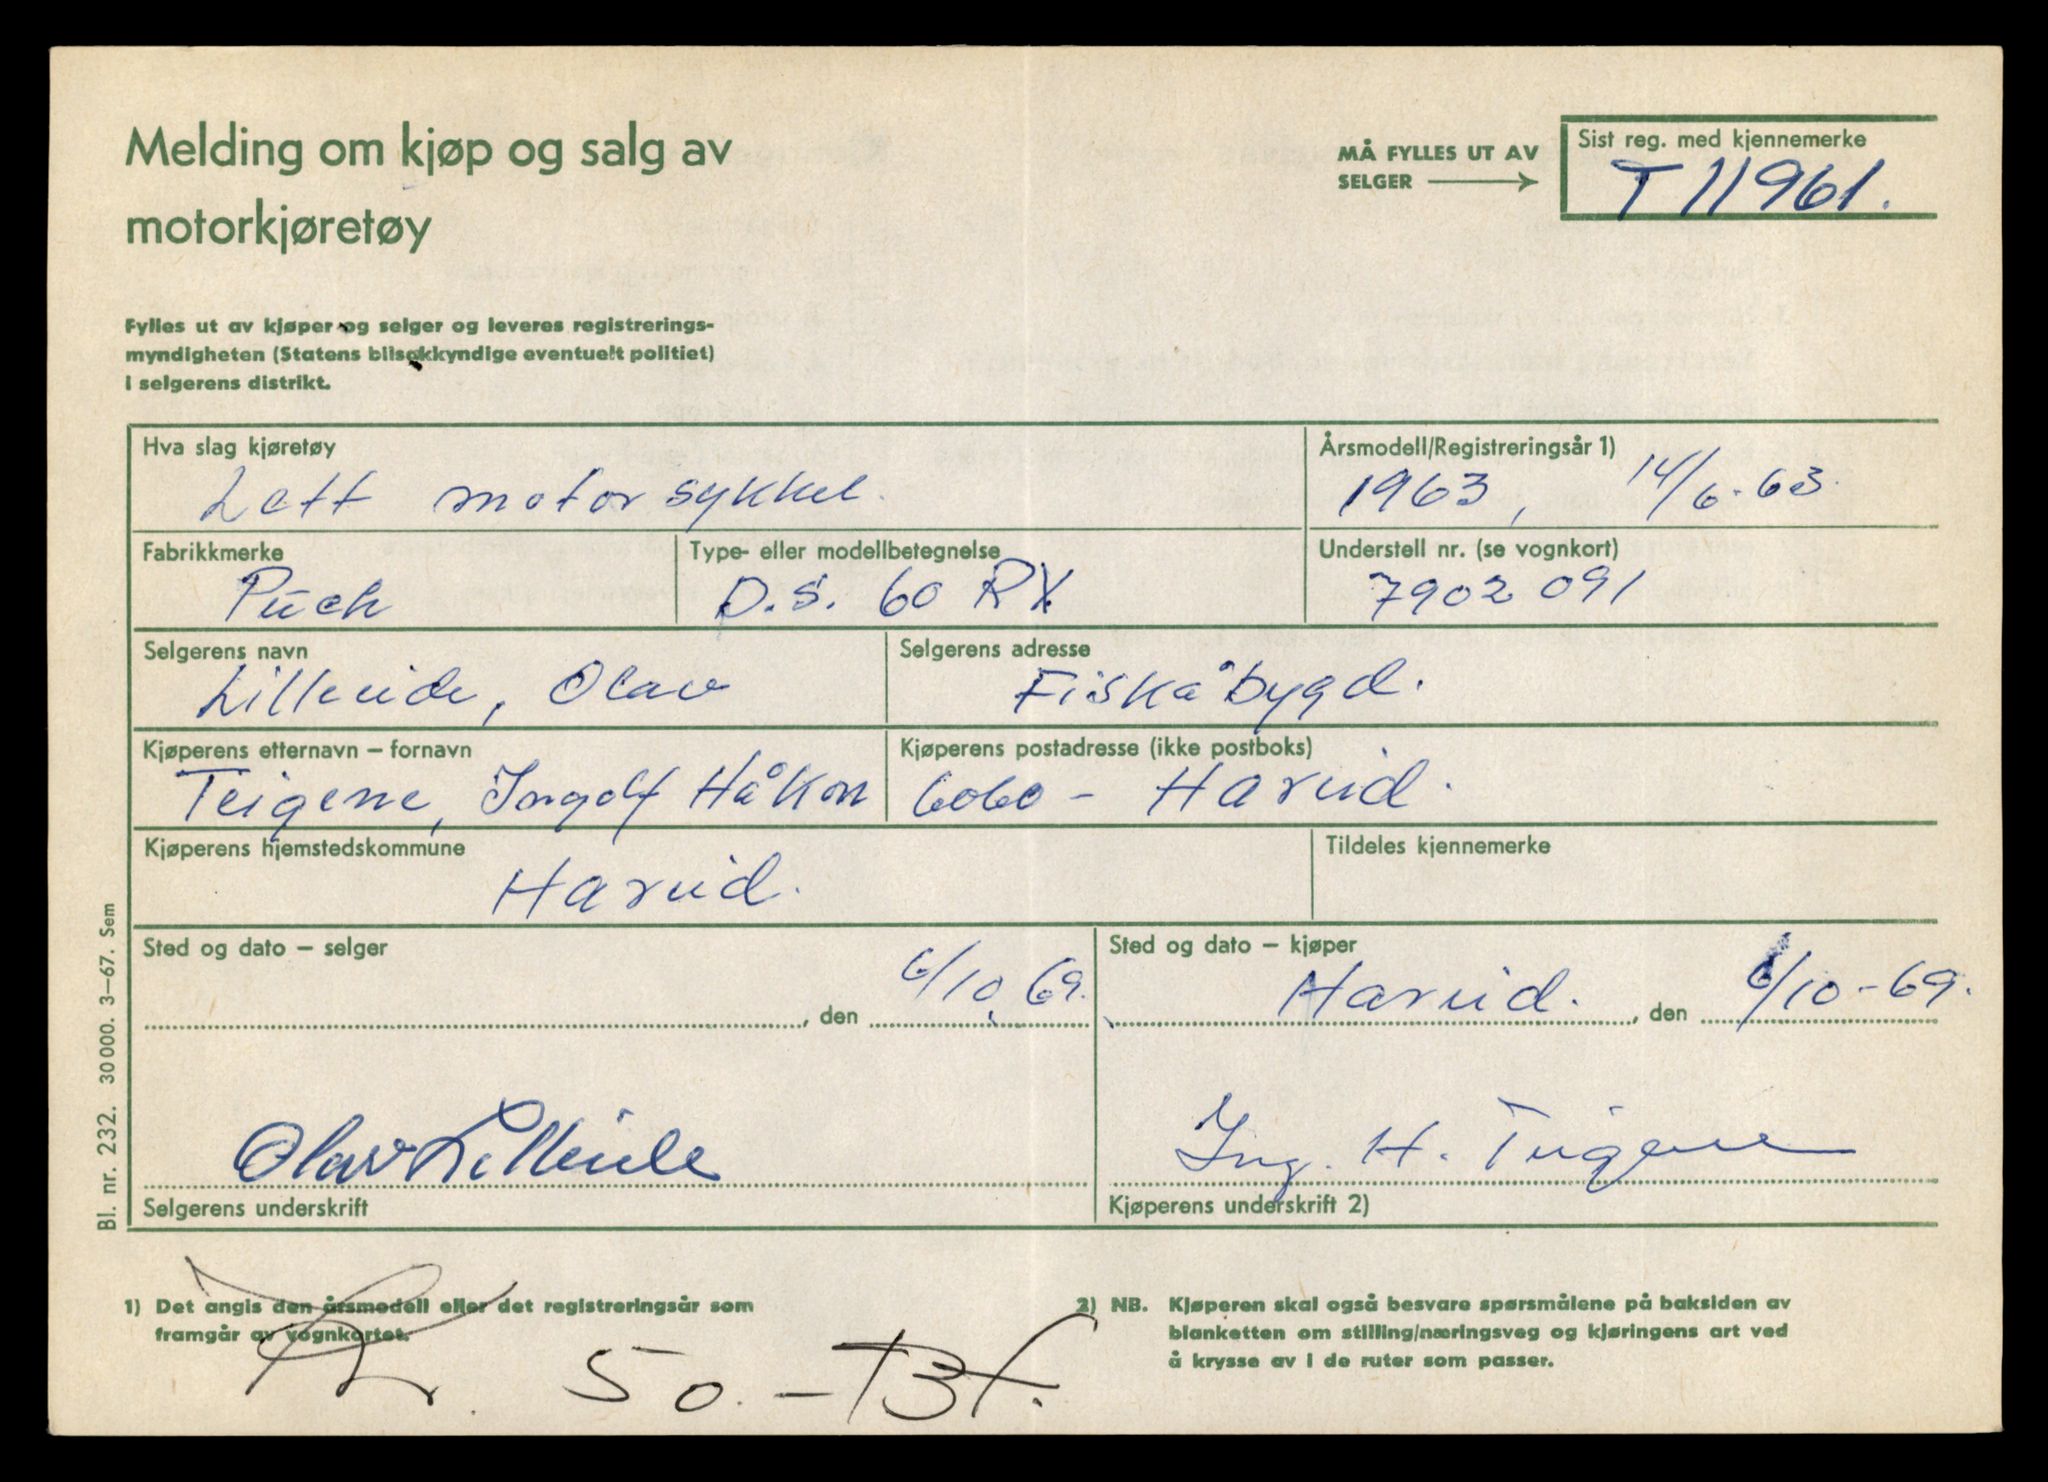 Melding om kjøp og salg av
motorkjøretøy
MÅ FYLLES UT AV
SELGER
Sist reg. med kjennemerke
T 11961.
Fylles ut av kjøper og selger og leveres registrerings-
myndigheten (Statens bilsakkyndige eventuelt politiet)
i selgerens distrikt.
Hva slag kjøretøy
Lett motorsykkel.
Årsmodell/Registreringsår 1)
1963, 14/6-63.
Fabrikkmerke
Puch
Type- eller modellbetegnelse
D.S. 60 RX
Understell nr. (se vognkort)
7902091
Selgerens navn
Lilleeide, Olav
Selgerens adresse
Fiskåbygd.
Kjøperens etternavn – fornavn
Teigene, Ingolf Håkon
Kjøperens postadresse (ikke postboks)
6060 - Hareid.
Kjøperens hjemstedskommune
Hareid.
Tildeles kjennemerke
Sted og dato – selger
, den 6/10 69.
Sted og dato – kjøper
Hareid. , den 6/10-69.
Olav Lilleeide
Selgerens underskrift
Ing. H. Teigene
Kjøperens underskrift 2)
Bl. nr. 232. 30 000. 3–67. Sem
1) Det angis den årsmodell eller det registreringsår som
framgår av vognkortet.
2) NB. Kjøperen skal også besvare spørsmålene på baksiden av
blanketten om stilling/næringsveg og kjøringens art ved
å krysse av i de ruter som passer.
50.-